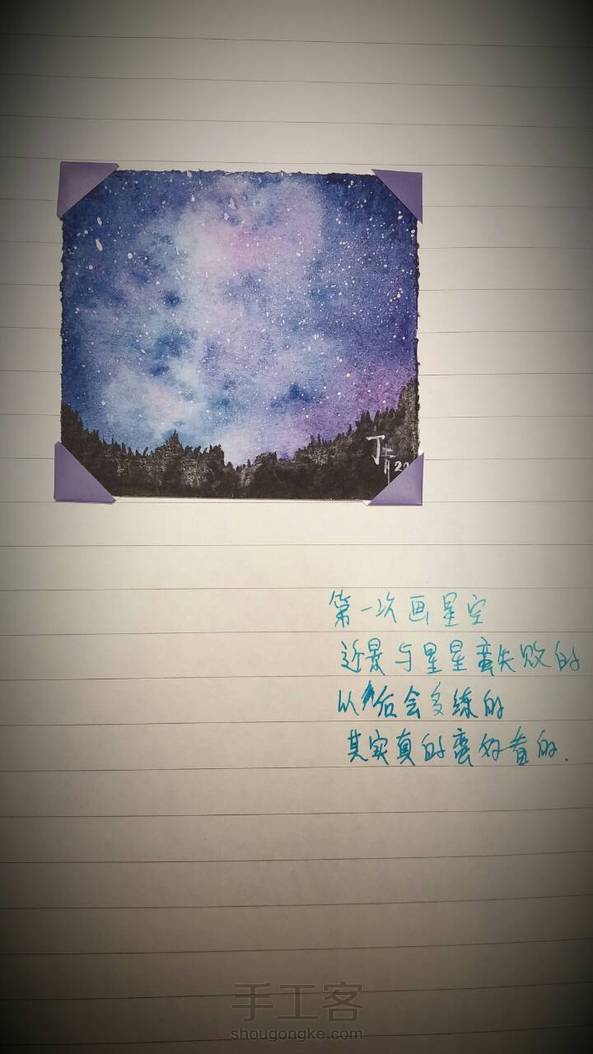 第一次画星空
近景与星星蛮失败的
以后会多练的
其实真的蛮好看的.
手工客
shougongke.com